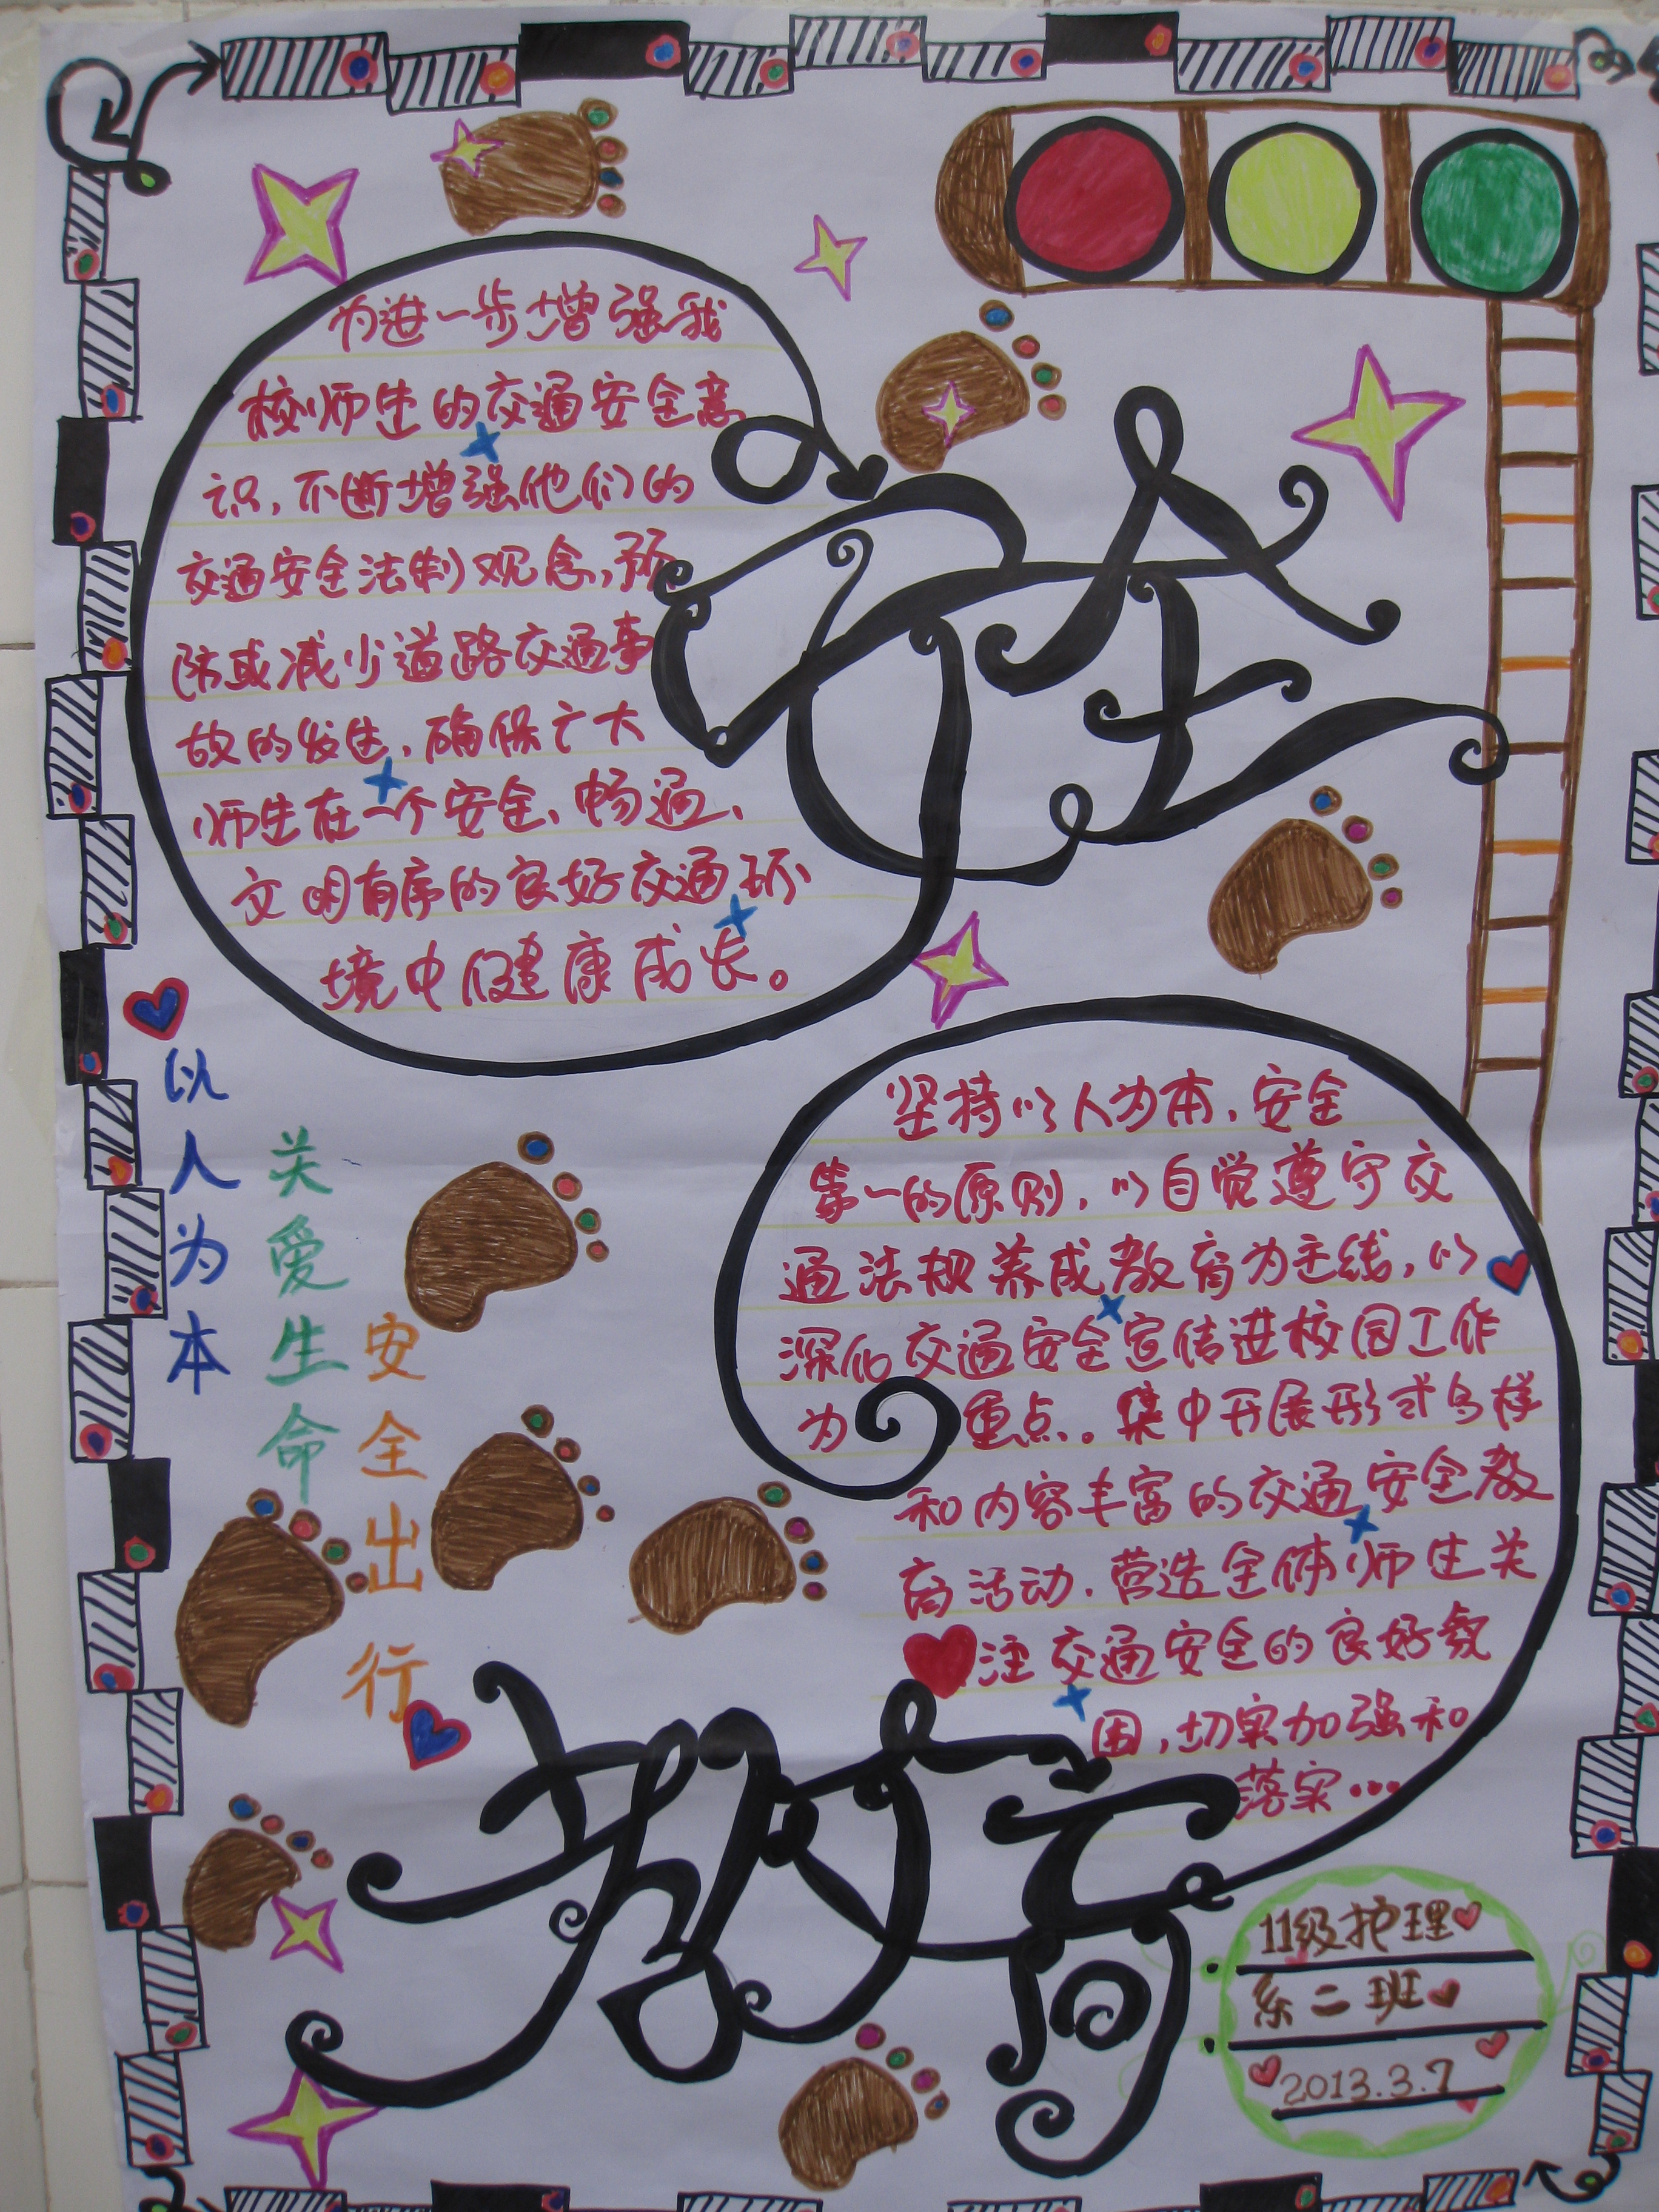 为进一步增强我
校师生的交通安全意
识,不断增强他们的
交通安全法制观念,预
防或减少道路交通事
故的发生,确保广大
师生在一个安全、畅通、
文明有序的良好交通环
境中健康成长。
安全
坚持以人为本,安全
第一的原则,以自觉遵守交
通法规养成教育为主线,以
深化交通安全宣传进校园工作
为重点。集中开展形式多样
和内容丰富的交通安全教
育活动.营造全体师生关
注交通安全的良好氛
围,切实加强和
落实…
以人为本
关爱生命
安全出行
11级护理
系二班
2013.3.7